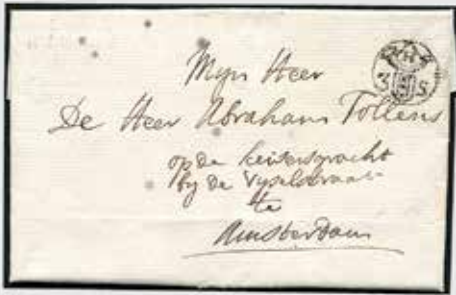 Mijn Heer
De Heer Abraham Tollens
op de keisersgracht
by de vyselstraat
te
Amsterdam
3 S